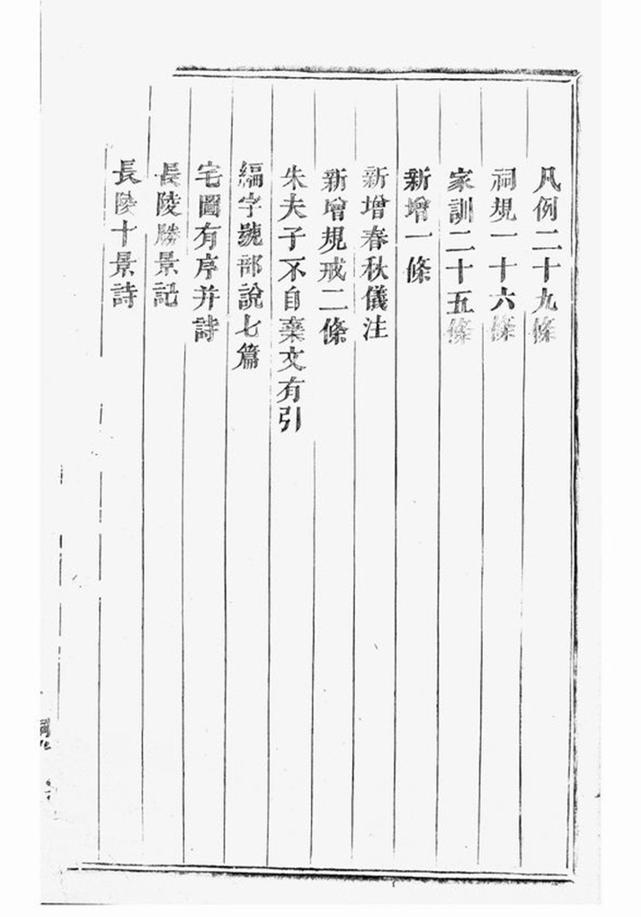 凡例二十九條
祠規一十六條
家訓二十五條
新增一條
新增春秋儀注
新增規戒二條
朱夫子不自棄文有引
編字號部說七篇
宅圖有序并詩
長陵勝景記
長陵十景詩